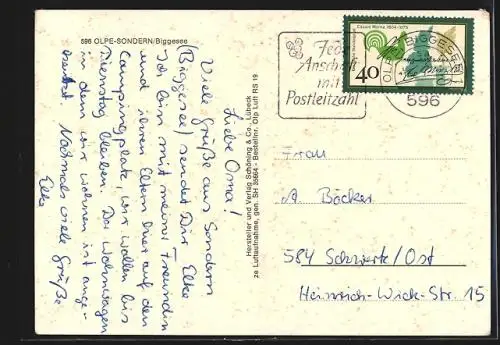 596 OLPE-SONDERN/Biggesee
Liebe Oma!
Viele Grüße aus Sondern
(Biggesee) sendet Dir Elke.
Ich bin mit meiner Freundin
und ihren Eltern hier auf den
Campingplatz, wir wollen bis
Dienstag bleiben. Der Wohnwagen
in dem wir wohnen ist ange-
Nochmals viele Grüße
Elke
Hersteller und Verlag Schöning & Co. Lübeck
Luftaufnahme, gen. SH 35664 - Bestellnr. Olp Luft RS 19
Jede
Anschrift
mit
Postleitzahl
40
OLPE BIGGESEE
596
Frau
A Böcker
584 Schwerte/Ost
Heinrich-Wick-Str. 15